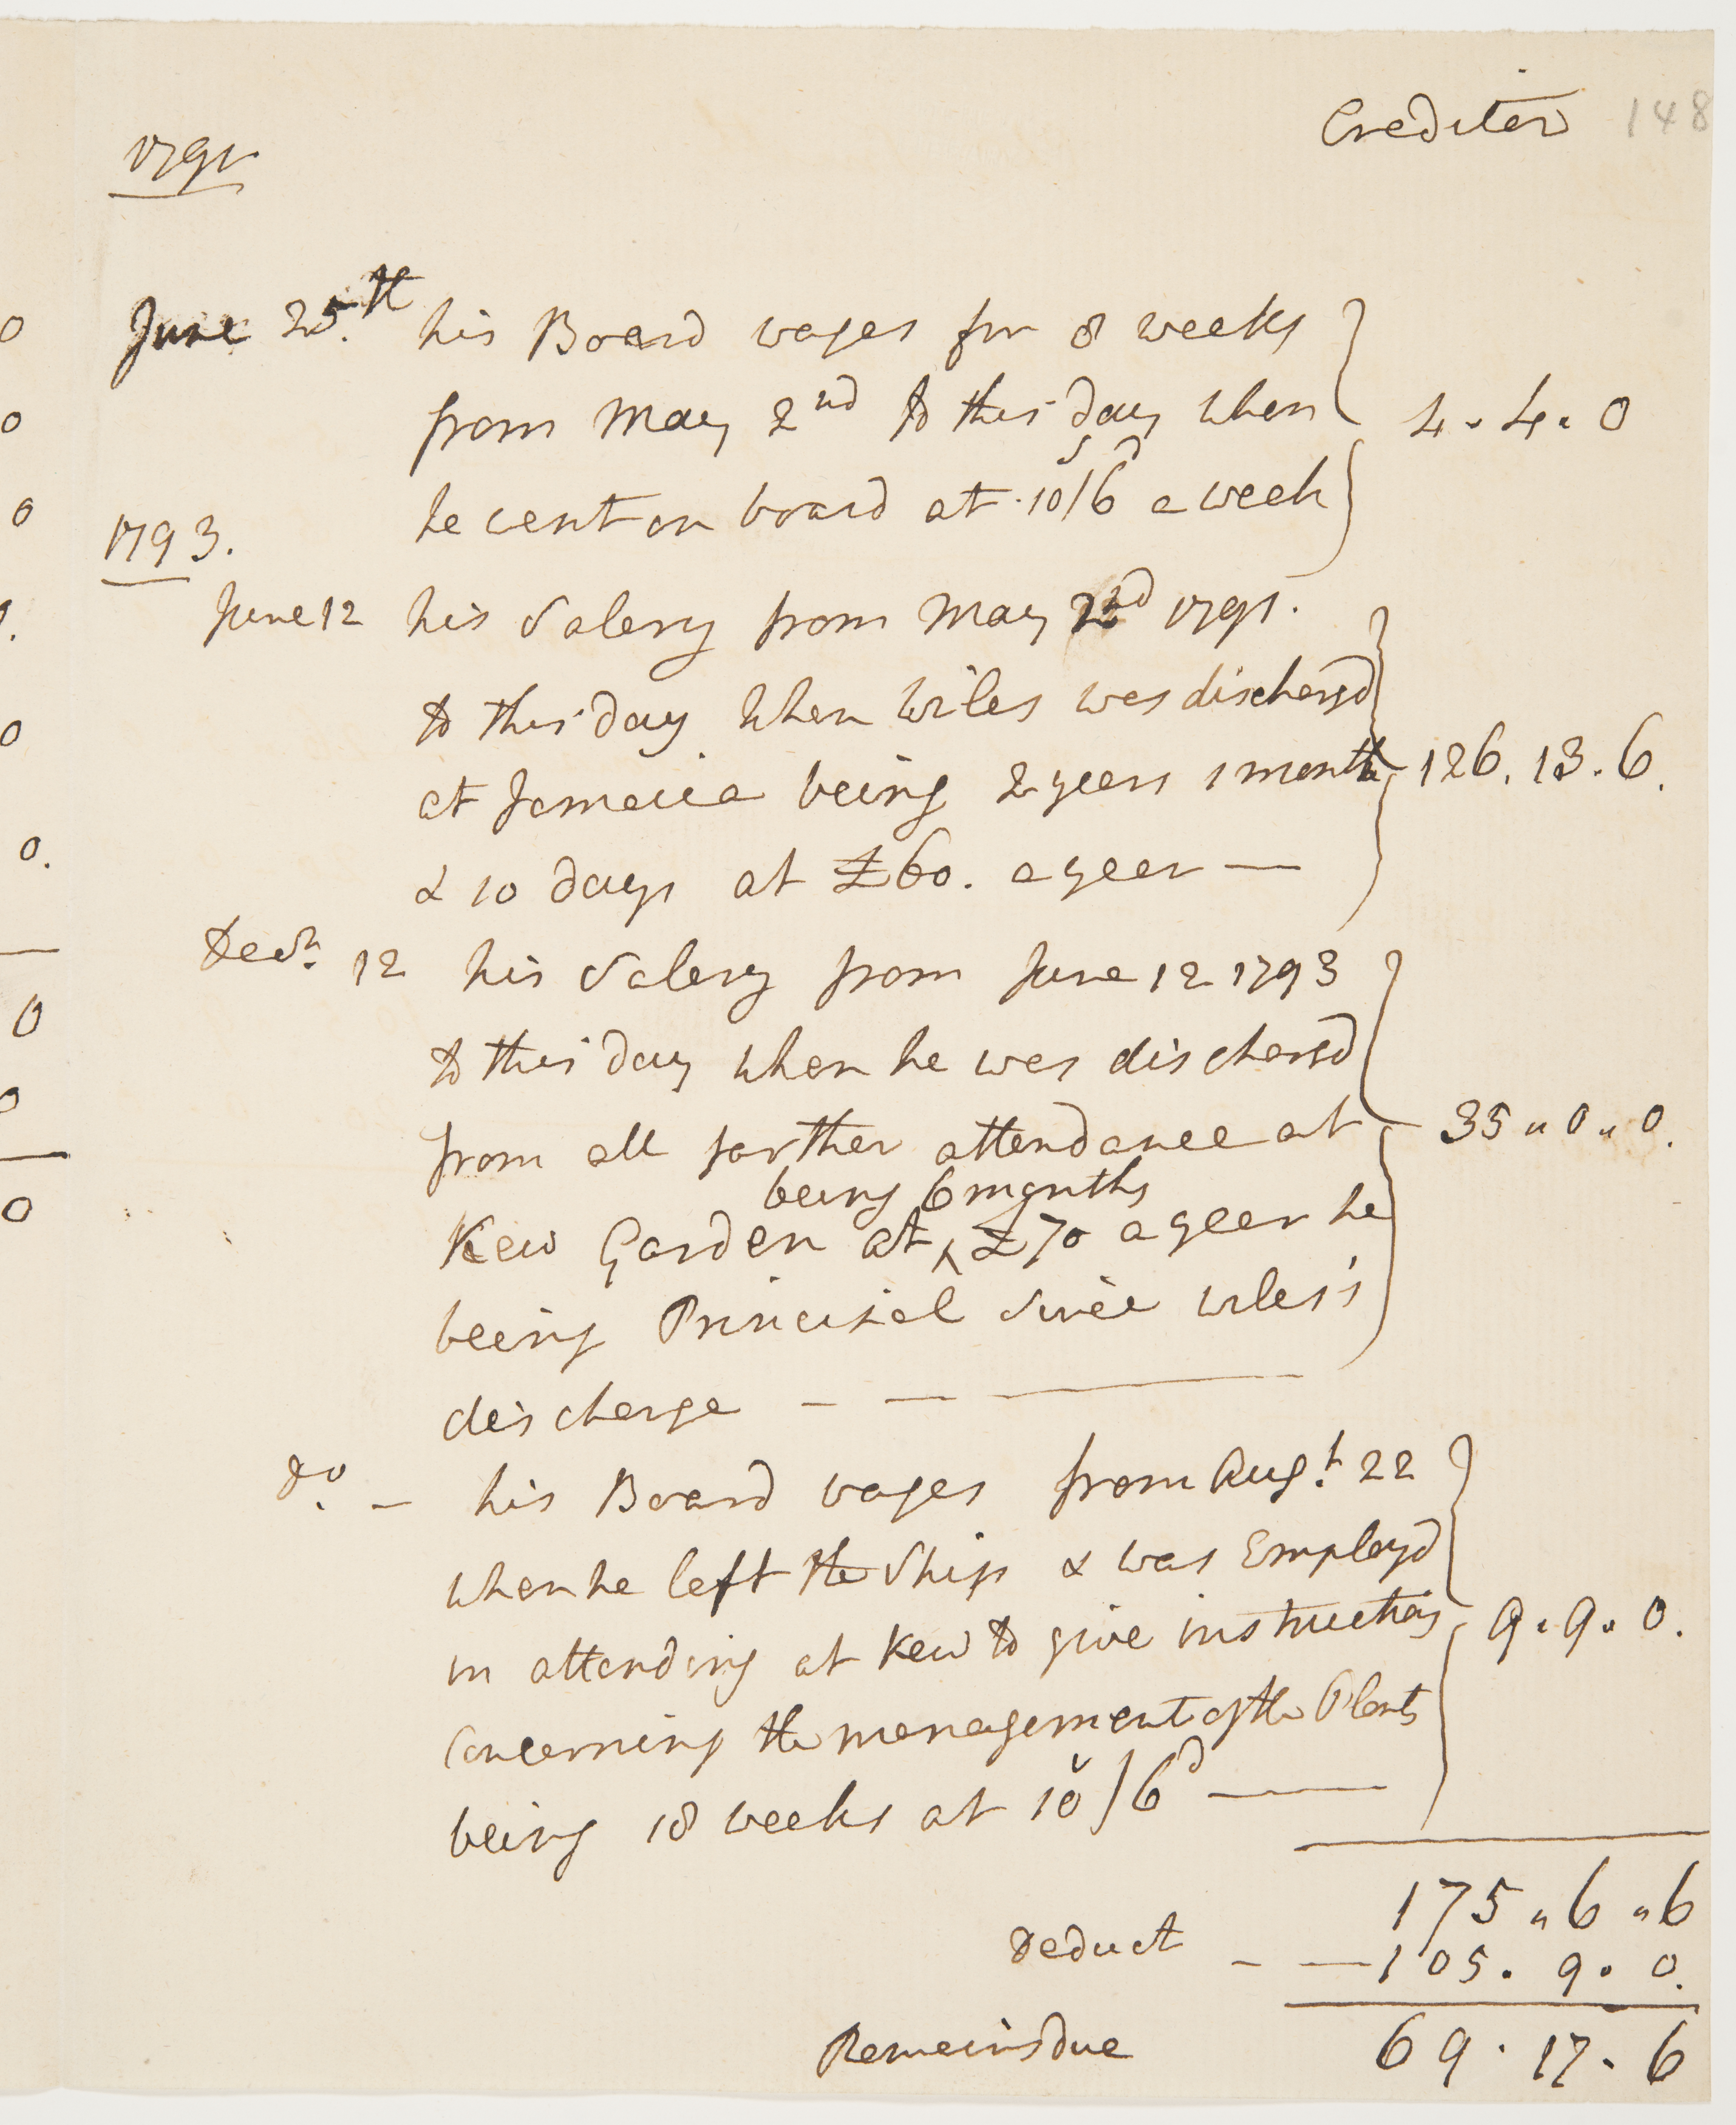 Creditor 148
1791
June 25.th his Board wages for 8 weeks
from May 2nd to this day when
he went on board at 10s/6d a week
4. 4. 0
1793.
June 12 his Salery from May 2nd 1791.
to this day when Wiles was dischargd
at Jamaica being 2 years 1 month
& 10 days at £60. a year —
126. 13. 6.
Decr. 12 his Salery from June 12 1793
to this day when he was dischargd
from all farther attendance at
35 " 0 " 0.
being 6 months
Kew Garden at ^ £70 a year he
being Principal since Wiles's
discharge — — —
do. — his Board wages from Augt. 22
when he left the Ship & was Employd
in attending at Kew to give instructions
9. 9. 0.
Concerning the management of the Plants
being 18 weeks at 10s/6d —
175 " 6 " 6
Deduct — — 105. 9. 0.
Remains due 69. 17. 6
0
0
0
0
0.
0
0
0